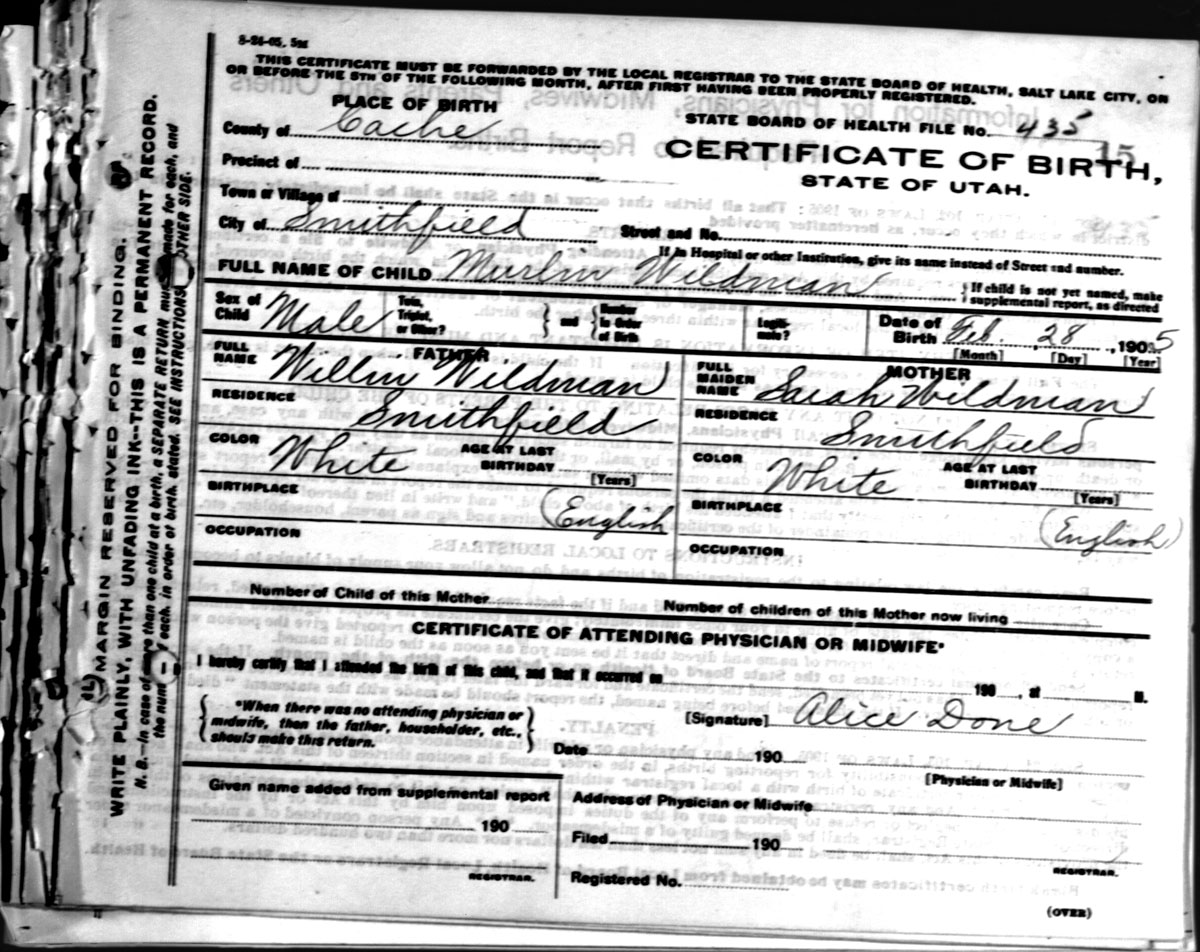 8-24-05, 5M
THIS CERTIFICATE MUST BE FORWARDED BY THE LOCAL REGISTRAR TO THE STATE BOARD OF HEALTH, SALT LAKE CITY, ON
OR BEFORE THE 5TH OF THE FOLLOWING MONTH, AFTER FIRST HAVING BEEN PROPERLY REGISTERED.
PLACE OF BIRTH
County of Cache
Precinct of
Town or Village of
City of Smithfield
STATE BOARD OF HEALTH FILE No. 435
15
CERTIFICATE OF BIRTH,
STATE OF UTAH.
Street and No.
If in Hospital or other Institution, give its name instead of Street and number.
FULL NAME OF CHILD Murlin Wildman
{If child is not yet named, make
supplemental report, as directed
Sex of Child Male
Twin, Triplet, or Other?
} and {
Number in Order of Birth
Legiti- mate?
Date of Birth Feb. 28, 1905
[Month] [Day] [Year]
FATHER
FULL NAME Wildman
RESIDENCE Smithfield
COLOR White
AGE AT LAST BIRTHDAY
[Years]
BIRTHPLACE (English
OCCUPATION
MOTHER
FULL MAIDEN NAME Sarah Wildman
RESIDENCE Smithfield
COLOR White
AGE AT LAST BIRTHDAY
[Years]
BIRTHPLACE (English)
OCCUPATION
Number of Child of this Mother
Number of children of this Mother now living
CERTIFICATE OF ATTENDING PHYSICIAN OR MIDWIFE*
I hereby certify that I attended the birth of this child, and that it occurred on 190 , at M.
{*When there was no attending physician or
midwife, then the father, householder, etc.,
should make this return.}
[Signature] Alice Done
Date 190
[Physician or Midwife]
Given name added from supplemental report
190
REGISTRAR.
Address of Physician or Midwife
Filed 190
REGISTRAR.
Registered No.
(OVER)
MARGIN RESERVED FOR BINDING.
WRITE PLAINLY, WITH UNFADING INK—THIS IS A PERMANENT RECORD.
N. B.—In case of more than one child at a birth, a SEPARATE RETURN must be made for each, and
the number of each, in order of birth, stated. SEE INSTRUCTIONS OTHER SIDE.